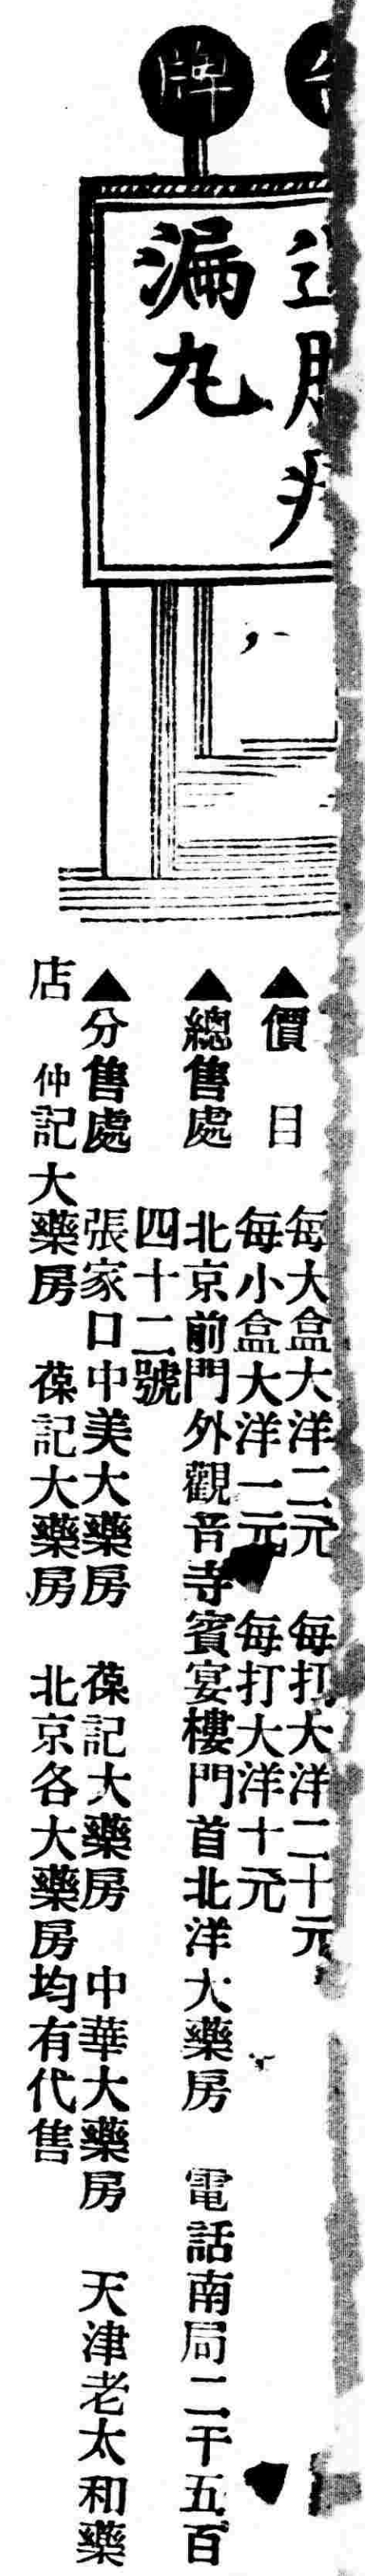 牌
漏丸
▲價目 每大盒大洋二元 每打大洋二十元
每小盒大洋一元 每打大洋十元
▲總售處 北京前門外觀音寺賓宴樓門首北洋大藥房 電話南局二千五百
四十二號
▲分售處 張家口中美大藥房 葆記大藥房 中華大藥房 天津老太和藥
店 仲記大藥房 葆記大藥房 北京各大藥房均有代售